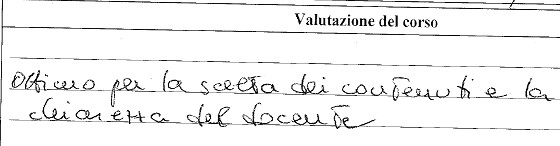 Valutazione del corso
Ottimo per la scelta dei contenuti e la
chiarezza del docente